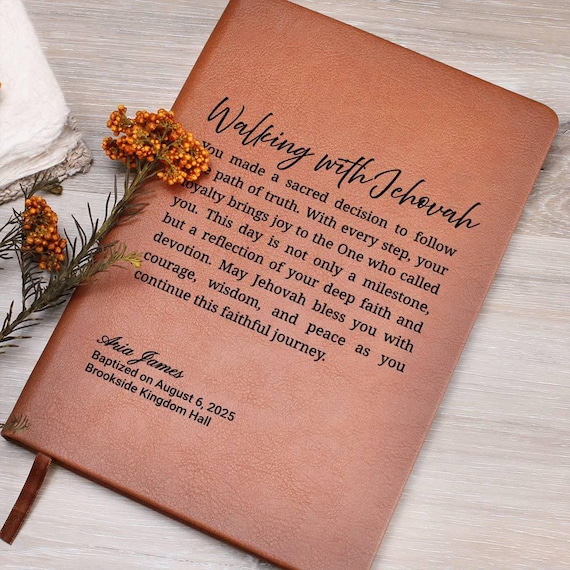 Walking with Jehovah
you made a sacred decision to follow
path of truth. With every step, your
loyalty brings joy to the One who called
you. This day is not only a milestone,
but a reflection of your deep faith and
devotion. May Jehovah bless you with
courage, wisdom, and peace as you
continue this faithful journey.
Aria James
Baptized on August 6, 2025
Brookside Kingdom Hall